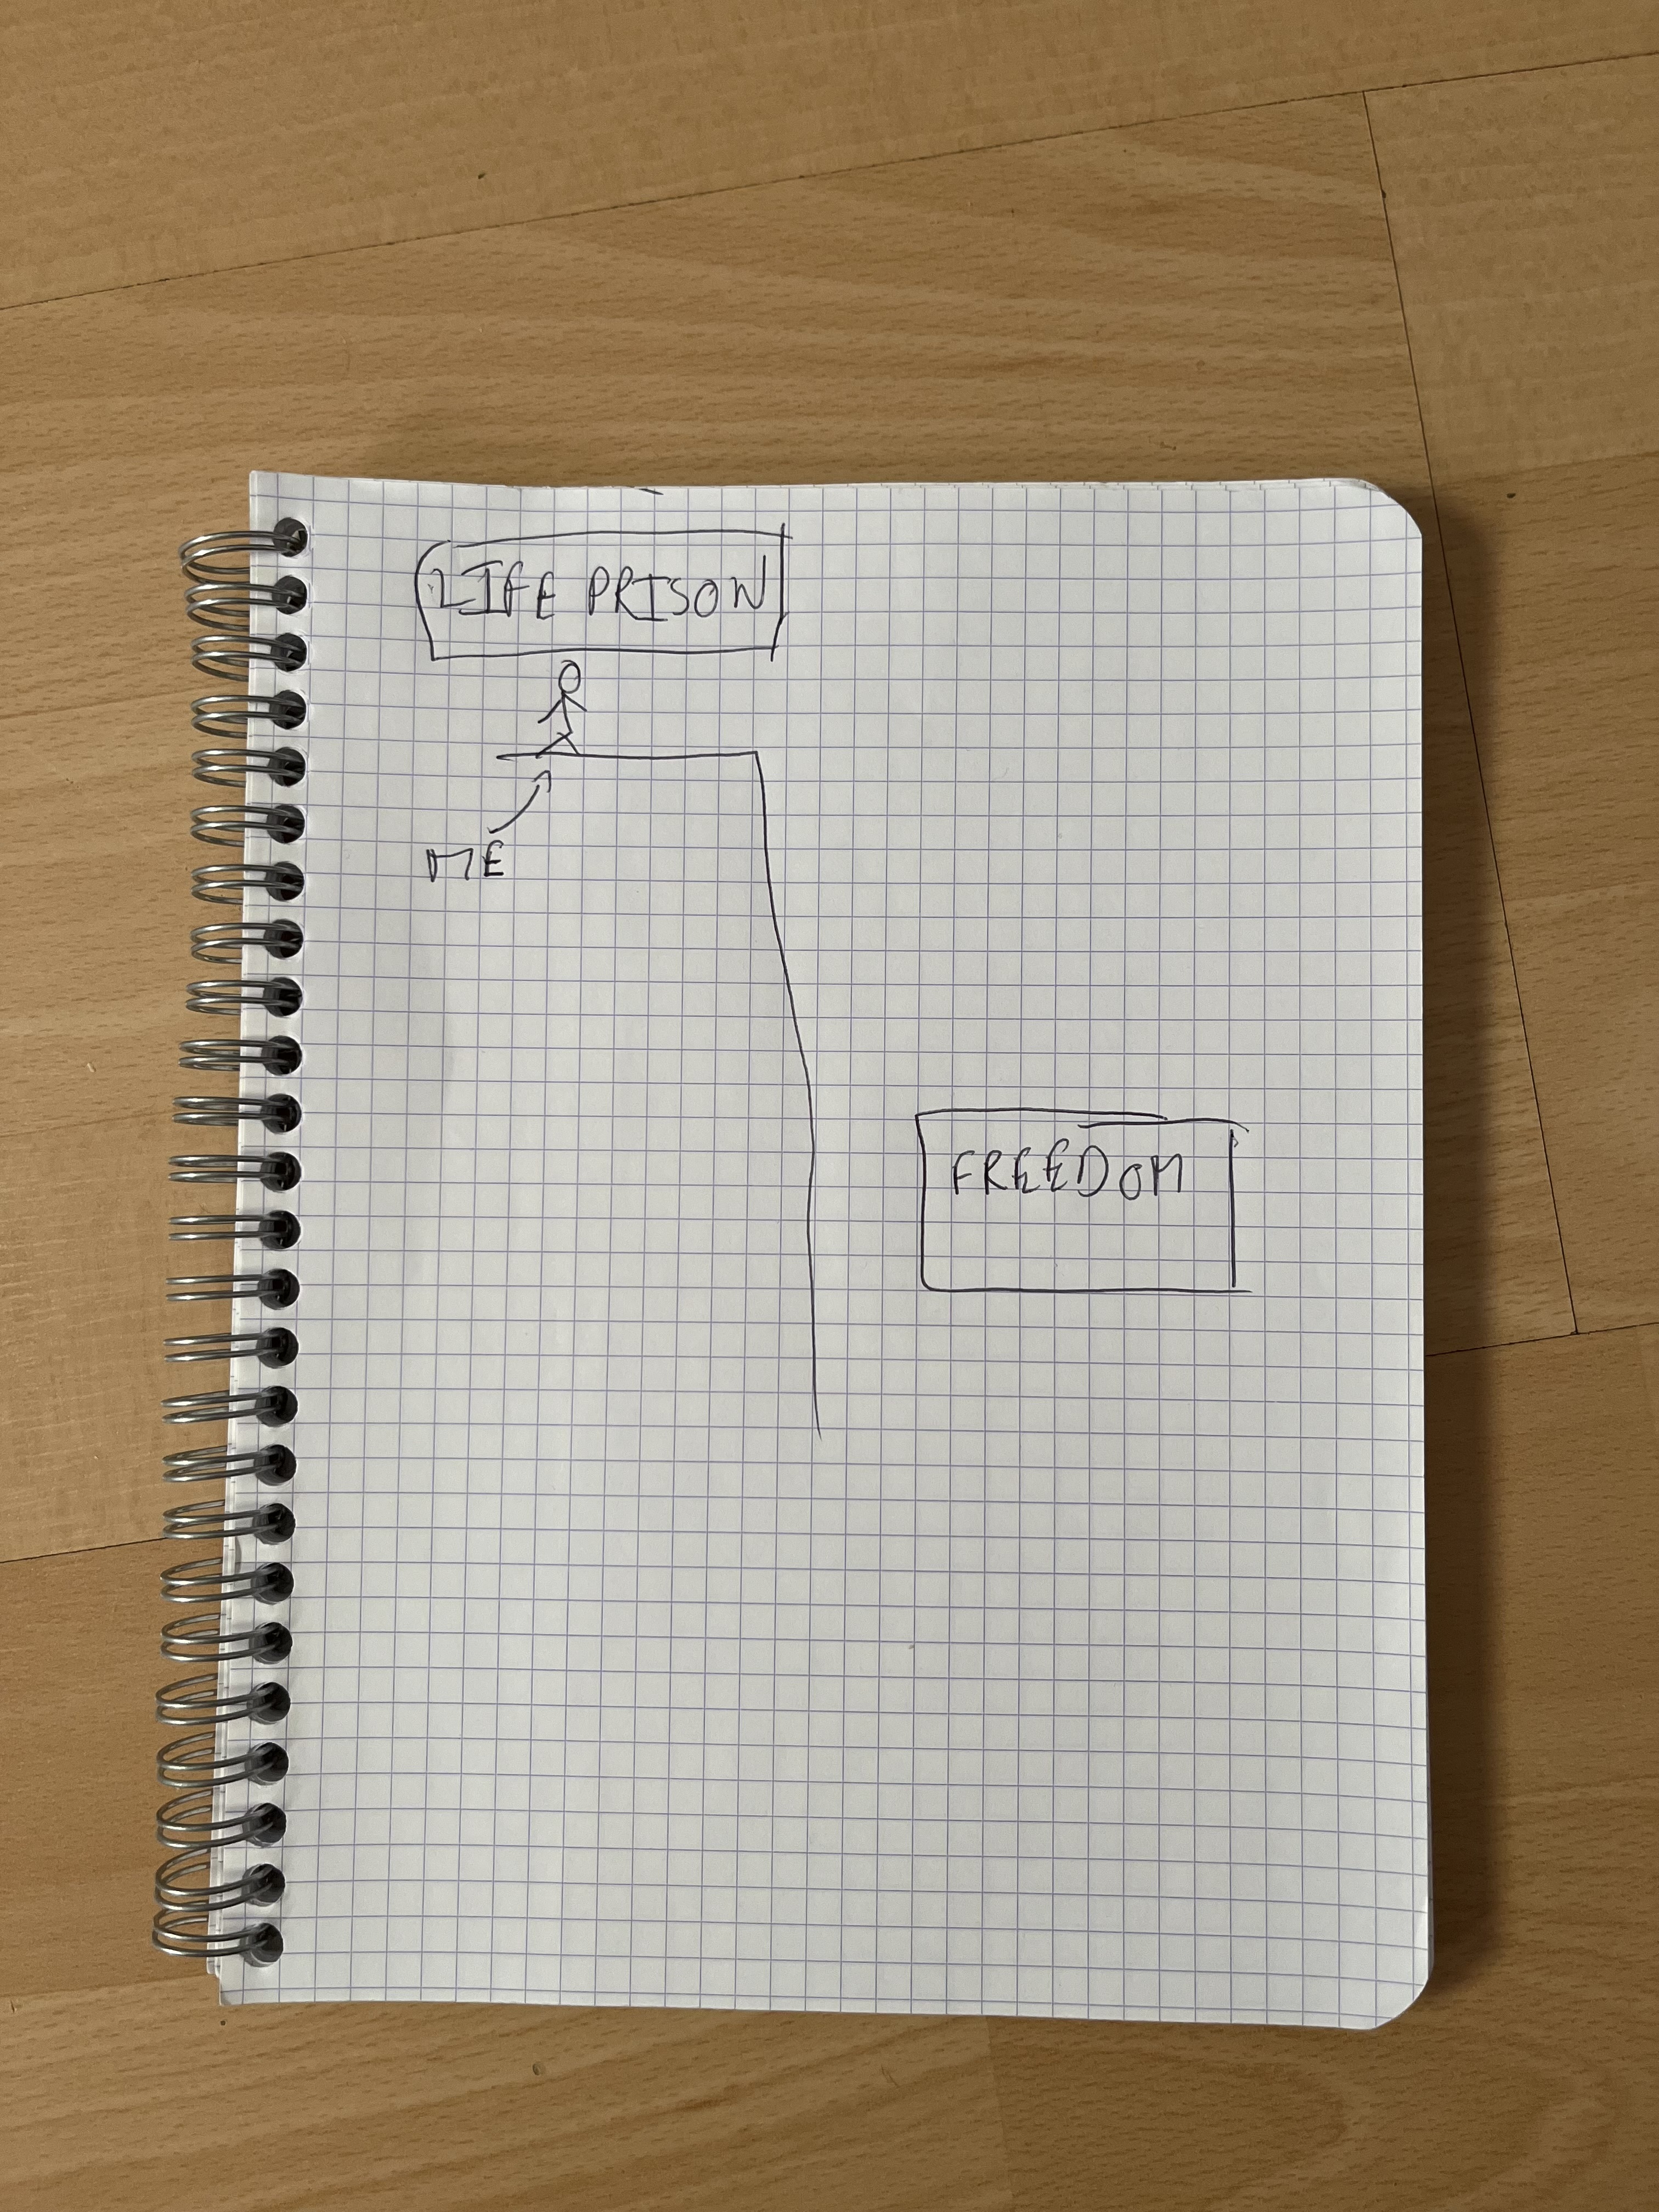 LIFE PRISON
ME
FREEDOM